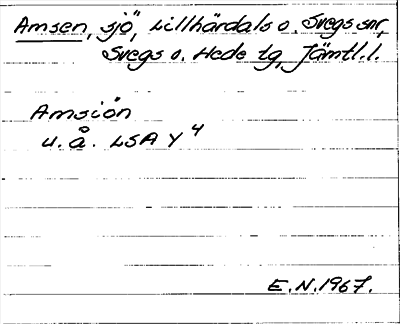 Amsen, sjö, Lillhärdals o. Svegs snr,
Svegs o. Hede tg, Jämtl.l.
Amsiön
u.å. LSA Y 4
E.N.1967.